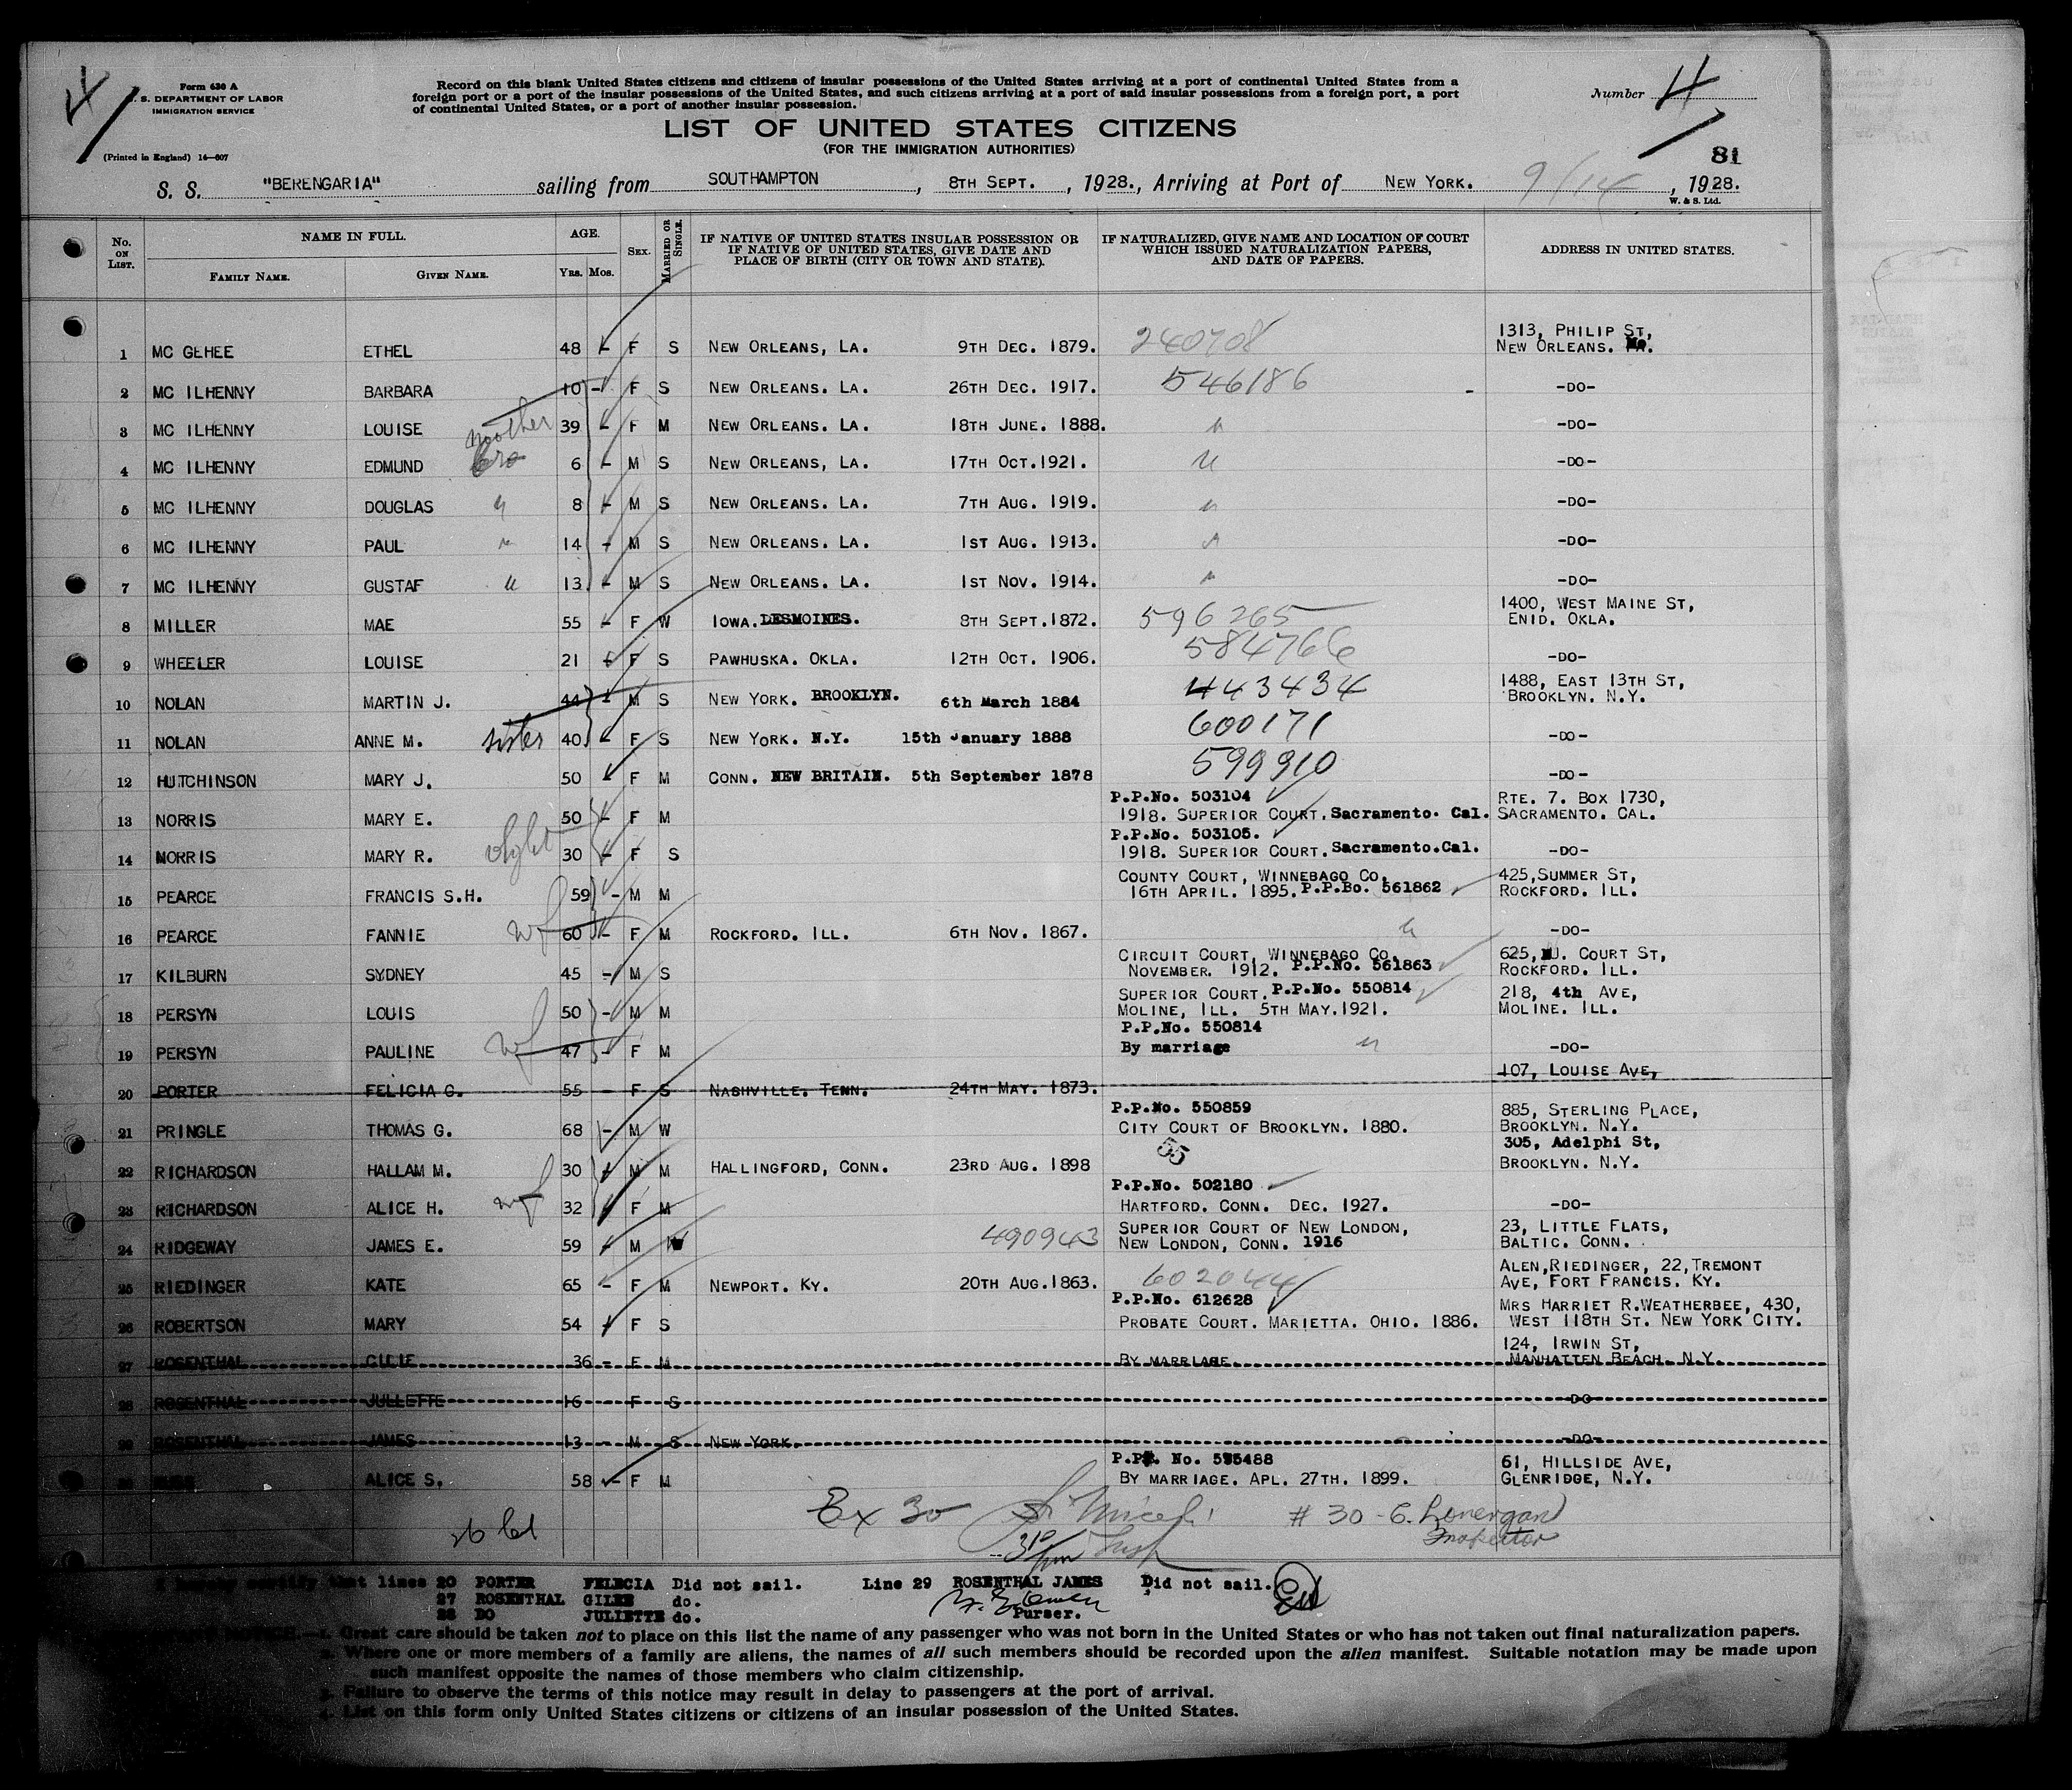 4
Form 630 A
S. DEPARTMENT OF LABOR
IMMIGRATION SERVICE
(Printed in England) 14—607
Record on this blank United States citizens and citizens of insular possessions of the United States arriving at a port of continental United States from a
foreign port or a port of the insular possessions of the United States, and such citizens arriving at a port of said insular possessions from a foreign port, a port
of continental United States, or a port of another insular possession.
Number 4
LIST OF UNITED STATES CITIZENS
(FOR THE IMMIGRATION AUTHORITIES)
81
S. S. "BERENGARIA" sailing from SOUTHAMPTON, 8TH SEPT., 1928., Arriving at Port of NEW YORK. 9/14, 1928.
W. & S. Ltd.
No. ON LIST. NAME IN FULL. FAMILY NAME. GIVEN NAME. AGE. YRS. MOS. SEX. MARRIED OR SINGLE. IF NATIVE OF UNITED STATES INSULAR POSSESSION OR IF NATIVE OF UNITED STATES, GIVE DATE AND PLACE OF BIRTH (CITY OR TOWN AND STATE). IF NATURALIZED, GIVE NAME AND LOCATION OF COURT WHICH ISSUED NATURALIZATION PAPERS, AND DATE OF PAPERS. ADDRESS IN UNITED STATES.
1 MC GEHEE ETHEL 48 - F S NEW ORLEANS, LA. 9TH DEC. 1879. 240708 1313, PHILIP ST, NEW ORLEANS.
2 MC ILHENNY BARBARA 10 - F S NEW ORLEANS. LA. 26TH DEC. 1917. 546186 -DO-
3 MC ILHENNY LOUISE mother 39 - F M NEW ORLEANS. LA. 18TH JUNE. 1888. " -DO-
4 MC ILHENNY EDMUND bro 6 - M S NEW ORLEANS, LA. 17TH OCT.1921. " -DO-
5 MC ILHENNY DOUGLAS " 8 - M S NEW ORLEANS. LA. 7TH AUG. 1919. " -DO-
6 MC ILHENNY PAUL " 14 - M S NEW ORLEANS. LA. 1ST AUG. 1913. " -DO-
7 MC ILHENNY GUSTAF " 13 - M S NEW ORLEANS. LA. 1ST NOV. 1914. " -DO-
8 MILLER MAE 55 - F W IOWA. DESMOINES. 8TH SEPT.1872. 596265 1400, WEST MAINE ST, ENID. OKLA.
9 WHEELER LOUISE 21 - F S PAWHUSKA. OKLA. 12TH OCT. 1906. 584766 -DO-
10 NOLAN MARTIN J. 44 - M S NEW YORK. BROOKLYN. 6th March 1884 443434 1488, EAST 13TH ST, BROOKLYN. N.Y.
11 NOLAN ANNE M. sister 40 - F S NEW YORK. N.Y. 15th January 1888 600171 -DO-
12 HUTCHINSON MARY J. 50 F M CONN. NEW BRITAIN. 5th September 1878 599910 -DO-
13 NORRIS MARY E. 50 - F M P.P.No. 503104 1918. SUPERIOR COURT. Sacramento. Cal. RTE. 7. BOX 1730, SACRAMENTO. CAL.
14 NORRIS MARY R. 30 - F S P.P.No. 503105. 1918. SUPERIOR COURT. Sacramento.Cal. -DO-
15 PEARCE FRANCIS S.H. 59 - M M COUNTY COURT, WINNEBAGO CO. 16TH APRIL. 1895. P.P.Bo. 561862 425,SUMMER ST, ROCKFORD. ILL.
16 PEARCE FANNIE wf 60 - F M ROCKFORD. ILL. 6TH NOV. 1867. " -DO-
17 KILBURN SYDNEY 45 - M S CIRCUIT COURT, WINNEBAGO CO. NOVEMBER. 1912. P.P.No. 561863 625, U. COURT ST, ROCKFORD. ILL.
18 PERSYN LOUIS 50 - M M SUPERIOR COURT. P.P.No. 550814 MOLINE, ILL. 5TH MAY.1921. 218, 4th AVE, MOLINE. ILL.
19 PERSYN PAULINE wf 47 - F M P.P.No. 550814 By marriage " -DO-
20 PORTER FELICIA G. 55 - F S NASHVILLE. TENN. 24TH MAY. 1873. 107, LOUISE AVE,
21 PRINGLE THOMAS G. 68 - M W P.P.No. 550859 CITY COURT OF BROOKLYN. 1880. 885, STERLING PLACE, BROOKLYN. N.Y.
22 RICHARDSON HALLAM M. 30 - M M HALLINGFORD, CONN. 23RD AUG. 1898 55 305, Adelphi St, BROOKLYN. N.Y.
23 RICHARDSON ALICE H. wf 32 F M P.P.No. 502180 HARTFORD. CONN. DEC. 1927. -DO-
24 RIDGEWAY JAMES E. 59 - M W 490943 SUPERIOR COURT OF NEW LONDON, NEW LONDON, CONN. 1916 23, LITTLE FLATS, BALTIC. CONN.
25 RIEDINGER KATE 65 - F M NEWPORT. KY. 20TH AUG.1863. 602044 ALEN,RIEDINGER, 22,TREMONT AVE, FORT FRANCIS. KY.
26 ROBERTSON MARY 54 - F S P.P.No. 612628 PROBATE COURT. MARIETTA. OHIO. 1886. MRS HARRIET R.WEATHERBEE, 430, WEST 118TH ST. NEW YORK CITY.
27 ROSENTHAL GILIE 36 - F M BY MARRIAGE. 124, IRWIN ST, MANHATTEN BEACH. N.Y.
28 ROSENTHAL JULLETTE 16 - F S -DO-
29 ROSENTHAL JAMES 13 - M S NEW YORK. -DO-
ALICE S. 58 - F M P.P. No. 535488 BY MARRIAGE. APL. 27TH. 1899. 61, HILLSIDE AVE, GLENRIDGE, N.Y.
Ex 30 # 30 - C. Lonergan
Inspector
certify that lines 20 PORTER FELECIA Did not sail. Line 29 ROSENTHAL JAMES Did not sail.
27 ROSENTHAL GILEE do.
28 DO JULIETTE do. Purser.
NOTICE.—1. Great care should be taken not to place on this list the name of any passenger who was not born in the United States or who has not taken out final naturalization papers.
2. Where one or more members of a family are aliens, the names of all such members should be recorded upon the alien manifest. Suitable notation may be made upon
such manifest opposite the names of those members who claim citizenship.
3. Failure to observe the terms of this notice may result in delay to passengers at the port of arrival.
4. List on this form only United States citizens or citizens of an insular possession of the United States.